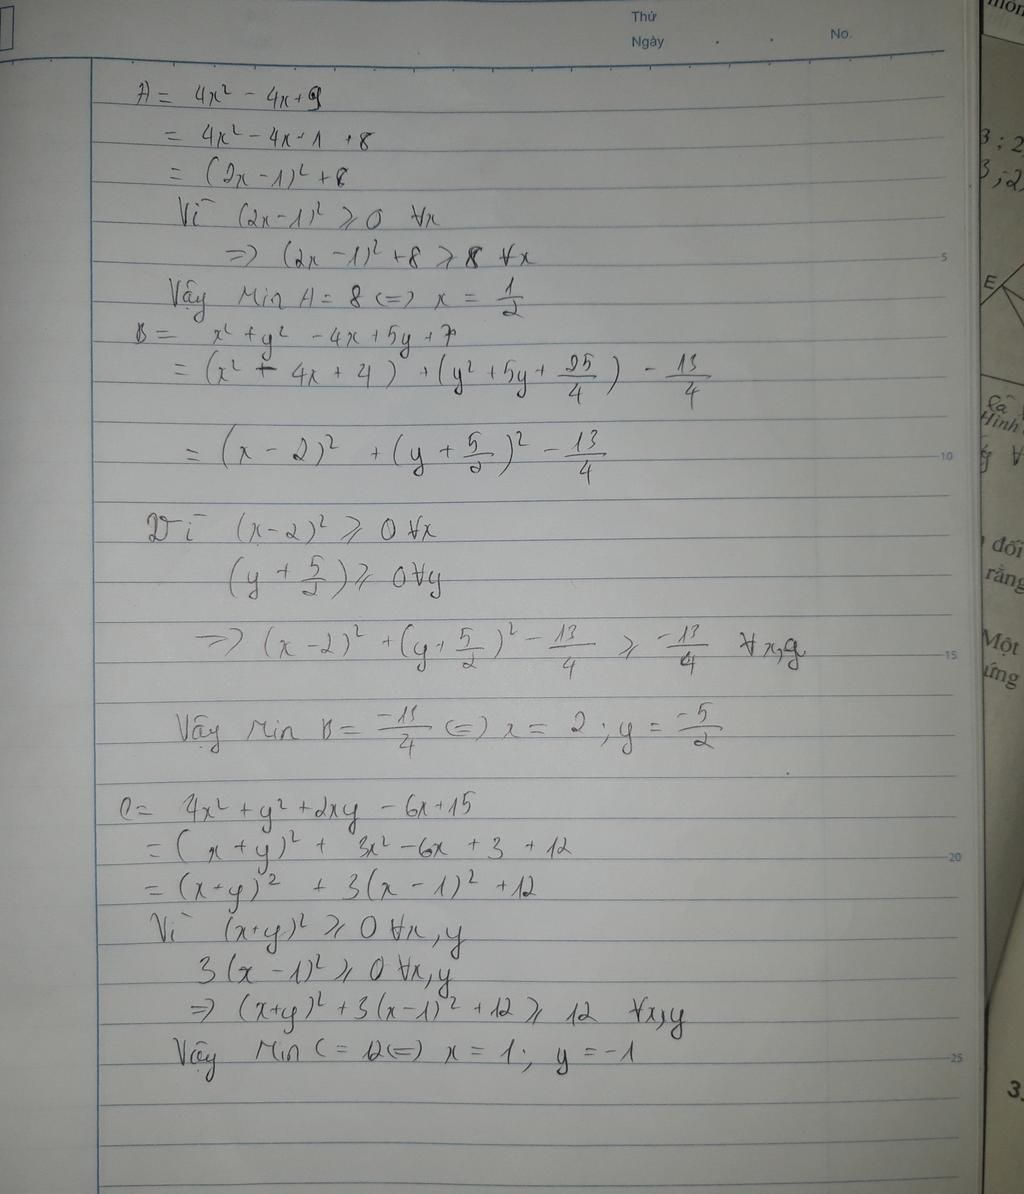 Thứ
Ngày . . No.
A = 4x² - 4x + 9
= 4x² - 4x + 1 + 8
= (2x - 1)² + 8
Vì (2x - 1)² ⩾ 0 ∀x
=> (2x - 1)² + 8 ⩾ 8 ∀x
Vậy Min A = 8 <=> x = 1/2
B = x² + y² - 4x + 5y + 7
= (x² - 4x + 4) + (y² + 5y + 25/4) - 13/4
= (x - 2)² + (y + 5/2)² - 13/4
Vì (x - 2)² ⩾ 0 ∀x
(y + 5/2) ⩾ 0 ∀y
=> (x - 2)² + (y + 5/2)² - 13/4 ⩾ -13/4 ∀x,y
Vậy Min B = -13/4 <=> x = 2 ; y = -5/2
C = 4x² + y² + 2xy - 6x + 15
= (x + y)² + 3x² - 6x + 3 + 12
= (x + y)² + 3(x - 1)² + 12
Vì (x + y)² ⩾ 0 ∀x, y
3(x - 1)² ⩾ 0 ∀x, y
=> (x + y)² + 3(x - 1)² + 12 ⩾ 12 ∀x, y
Vậy Min C = 12 <=> x = 1 ; y = -1
5
10
15
20
25
3 ; 2
3 ; -2
E
Hình
đối
rằng
Một
ứng
3.